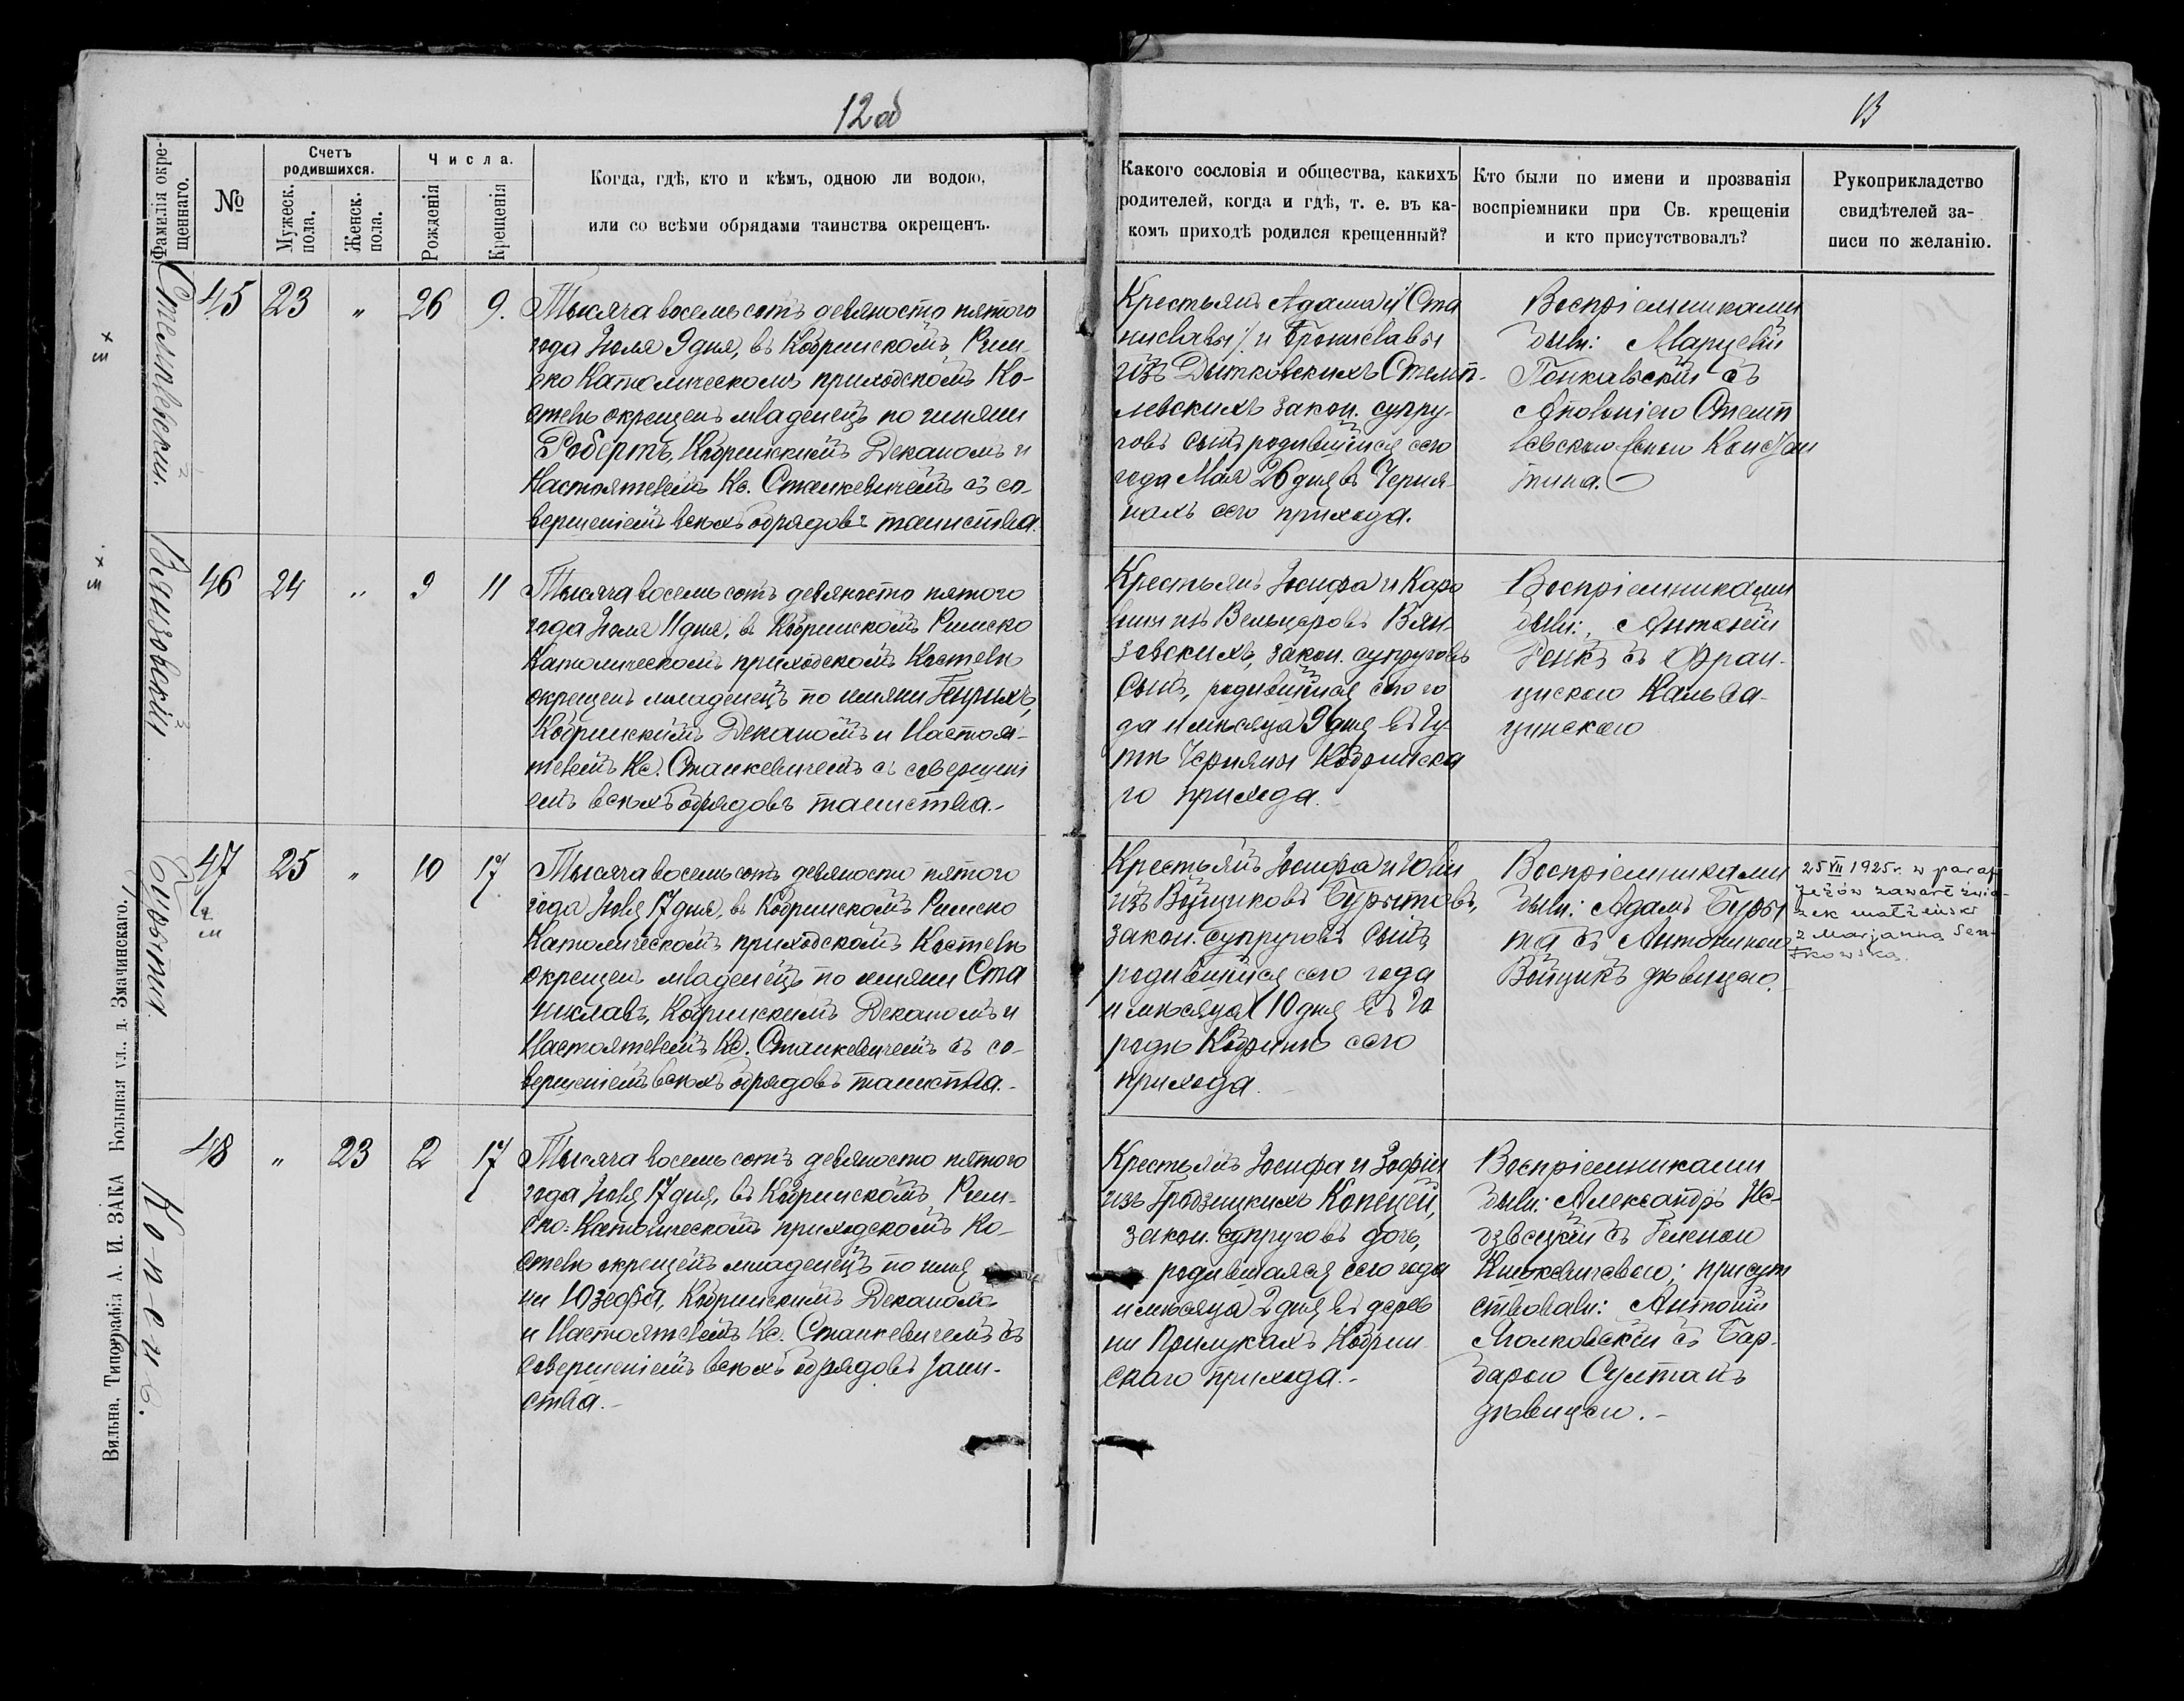 12об
13
Фамилія окре-
щеннаго.
№
Счетъ
родившихся.
Мужеск.
пола.
Женск.
пола.
Числа.
Рожденія
Крещенія
Когда, гдѣ, кто и кѣмъ, одною ли водою,
или со всѣми обрядами таинства окрещенъ.
Какого сословія и общества, какихъ
родителей, когда и гдѣ, т. е. въ ка-
комъ приходѣ родился крещенный?
Кто были по имени и прозванія
воспріемники при Св. крещеніи
и кто присутствовалъ?
Рукоприкладство
свидѣтелей за-
писи по желанію.
45 23 " 26 9.
Тысяча восемь сотъ девяносто пятого
года Іюля 9 дня, въ Кобринскомъ Рим-
ско Католическомъ приходскомъ Ко-
стелѣ окрещенъ младенецъ по имяни
Робертъ, Кобринскимъ Деканомъ и
Настоятелемъ Кс. Станкевичемъ съ со-
вершеніемъ всѣхъ обрядовъ таинства.
Крестьянъ Адама и Ста
ниславы и Брониславы
изъ Дытковскихъ Стемп-
левскихъ закон. супру-
говъ сынъ родившійся сего
года Мая 26 дня въ Черня-
нахъ сего прихода.
Воспріемниками
были: Марцелій
съ
Аполоніею Стемп
левскою женою Констан
тина.
Вянзовскій
46 24 " 9 11
Тысяча восемь сотъ девяносто пятого
года Іюля 11 дня, въ Кобринскомъ Римско
Католическомъ приходскомъ Костелѣ
окрещенъ младенецъ по имяни Генрихъ,
Кобринскимъ Деканомъ и Настоя-
телемъ Кс. Станкевичемъ съ совершені
емъ всѣхъ обрядовъ таинства.-
Крестьянъ Іосифа и Каро
лины изъ Вельцеровъ Вян-
зовскихъ, закон. супруговъ
сынъ, родившійся сего го
да и мѣсяца 9 дня въ Гу-
тѣ Черняны Кобринска
го прихода.
Воспріемниками
были: Антоній
съ Фран-
цискою
47 25 " 10 17
Тысяча восемь сотъ девяносто пятого
года Іюля 17 дня, въ Кобринскомъ Римско
Католическомъ приходскомъ Костелѣ
окрещенъ младенецъ по имяни Ста
ниславъ, Кобринскимъ Деканомъ и
Настоятелемъ Кс. Станкевичемъ съ со-
вершеніемъ всѣхъ обрядовъ таинства.-
Крестьянъ Іосифа и Юліи
изъ Вуйциковъ Бурытовъ,
закон. супруговъ сынъ
родившійся сего года
и мѣсяца 10 дня въ го
родѣ Кобринѣ сего
прихода.
Воспріемниками
были: Адамъ Буры
та съ Антониною
Войцикъ дѣвицею.
25 VII 1925 r. w paraf.
zawarł zwią-
zek małżeński
z Marjanną Sen-
kowską.
Копець.
48 " 23 2 17
Тысяча восемь сотъ девяносто пятого
года Іюля 17 дня, въ Кобринскомъ Рим-
ско-Католическомъ приходскомъ Ко-
стелѣ окрещенъ младенецъ по имя
ни Юзефа, Кобринскимъ Деканомъ
и Настоятелемъ Кс. Станкевичемъ съ
совершеніемъ всѣхъ обрядовъ таин-
ства.-
Крестьянъ Іосифа и Зофіи
изъ Гродзицкихъ Копецей,
закон. супруговъ дочь,
родившаяся сего года
и мѣсяца 2 дня въ дерев
ни Прилукахъ Кобрин
скаго прихода.-
Воспріемниками
были: Александръ
съ Геленою
присут
ствовали: Антоній
съ Бар-
барою Султанъ
дѣвицею.-
Вильна. Типографія А. И. ЗАКА Большая ул., д. Змачинскаго.